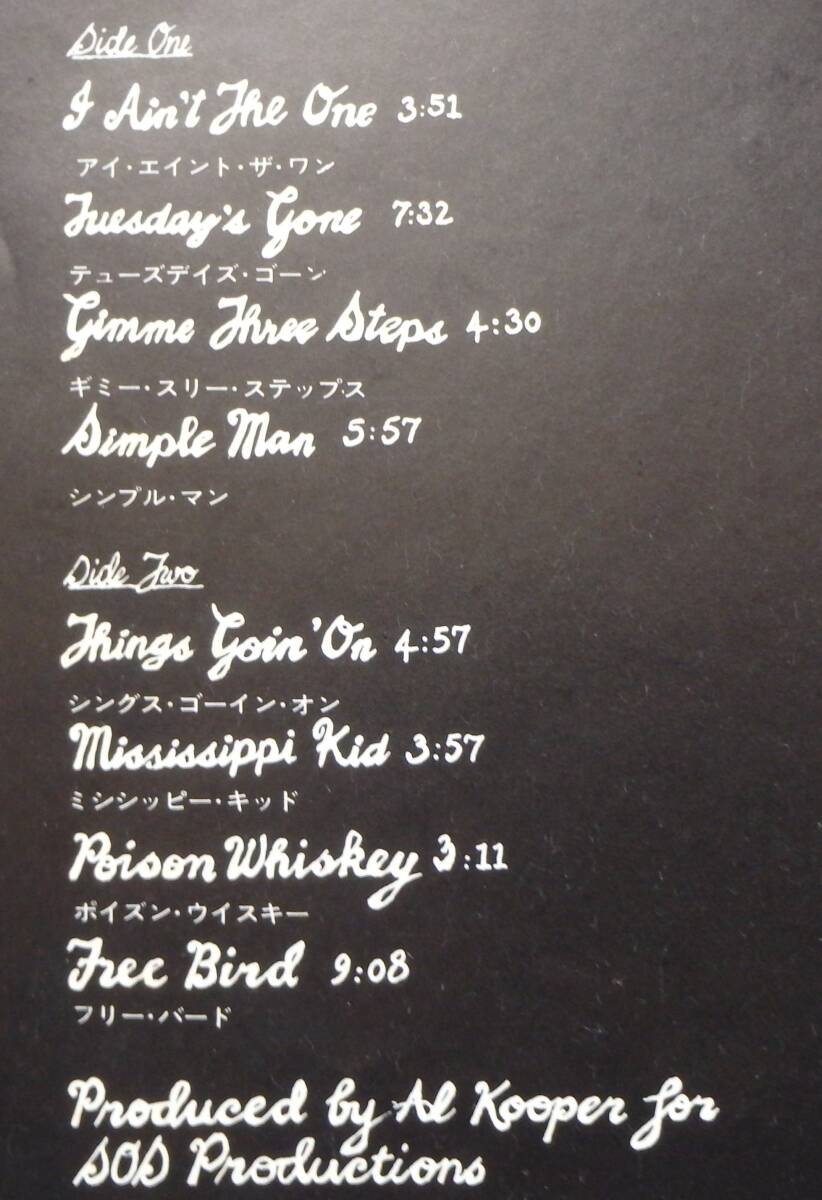 Side One
I Ain't The One 3:51
アイ·エイント·ザ·ワン
Tuesday's Gone 7:32
テューズデイズ·ゴーン
Gimme Three Steps 4:30
ギミー·スリー·ステップス
Simple Man 5:57
シンプル·マン
Side Two
Things Goin' On 4:57
シングス·ゴーイン·オン
Mississippi Kid 3:57
ミシシッピー·キッド
Poison Whiskey 3:11
ポイズン·ウイスキー
Free Bird 9:08
フリー·バード
Produced by Al Kooper for
SOS Productions